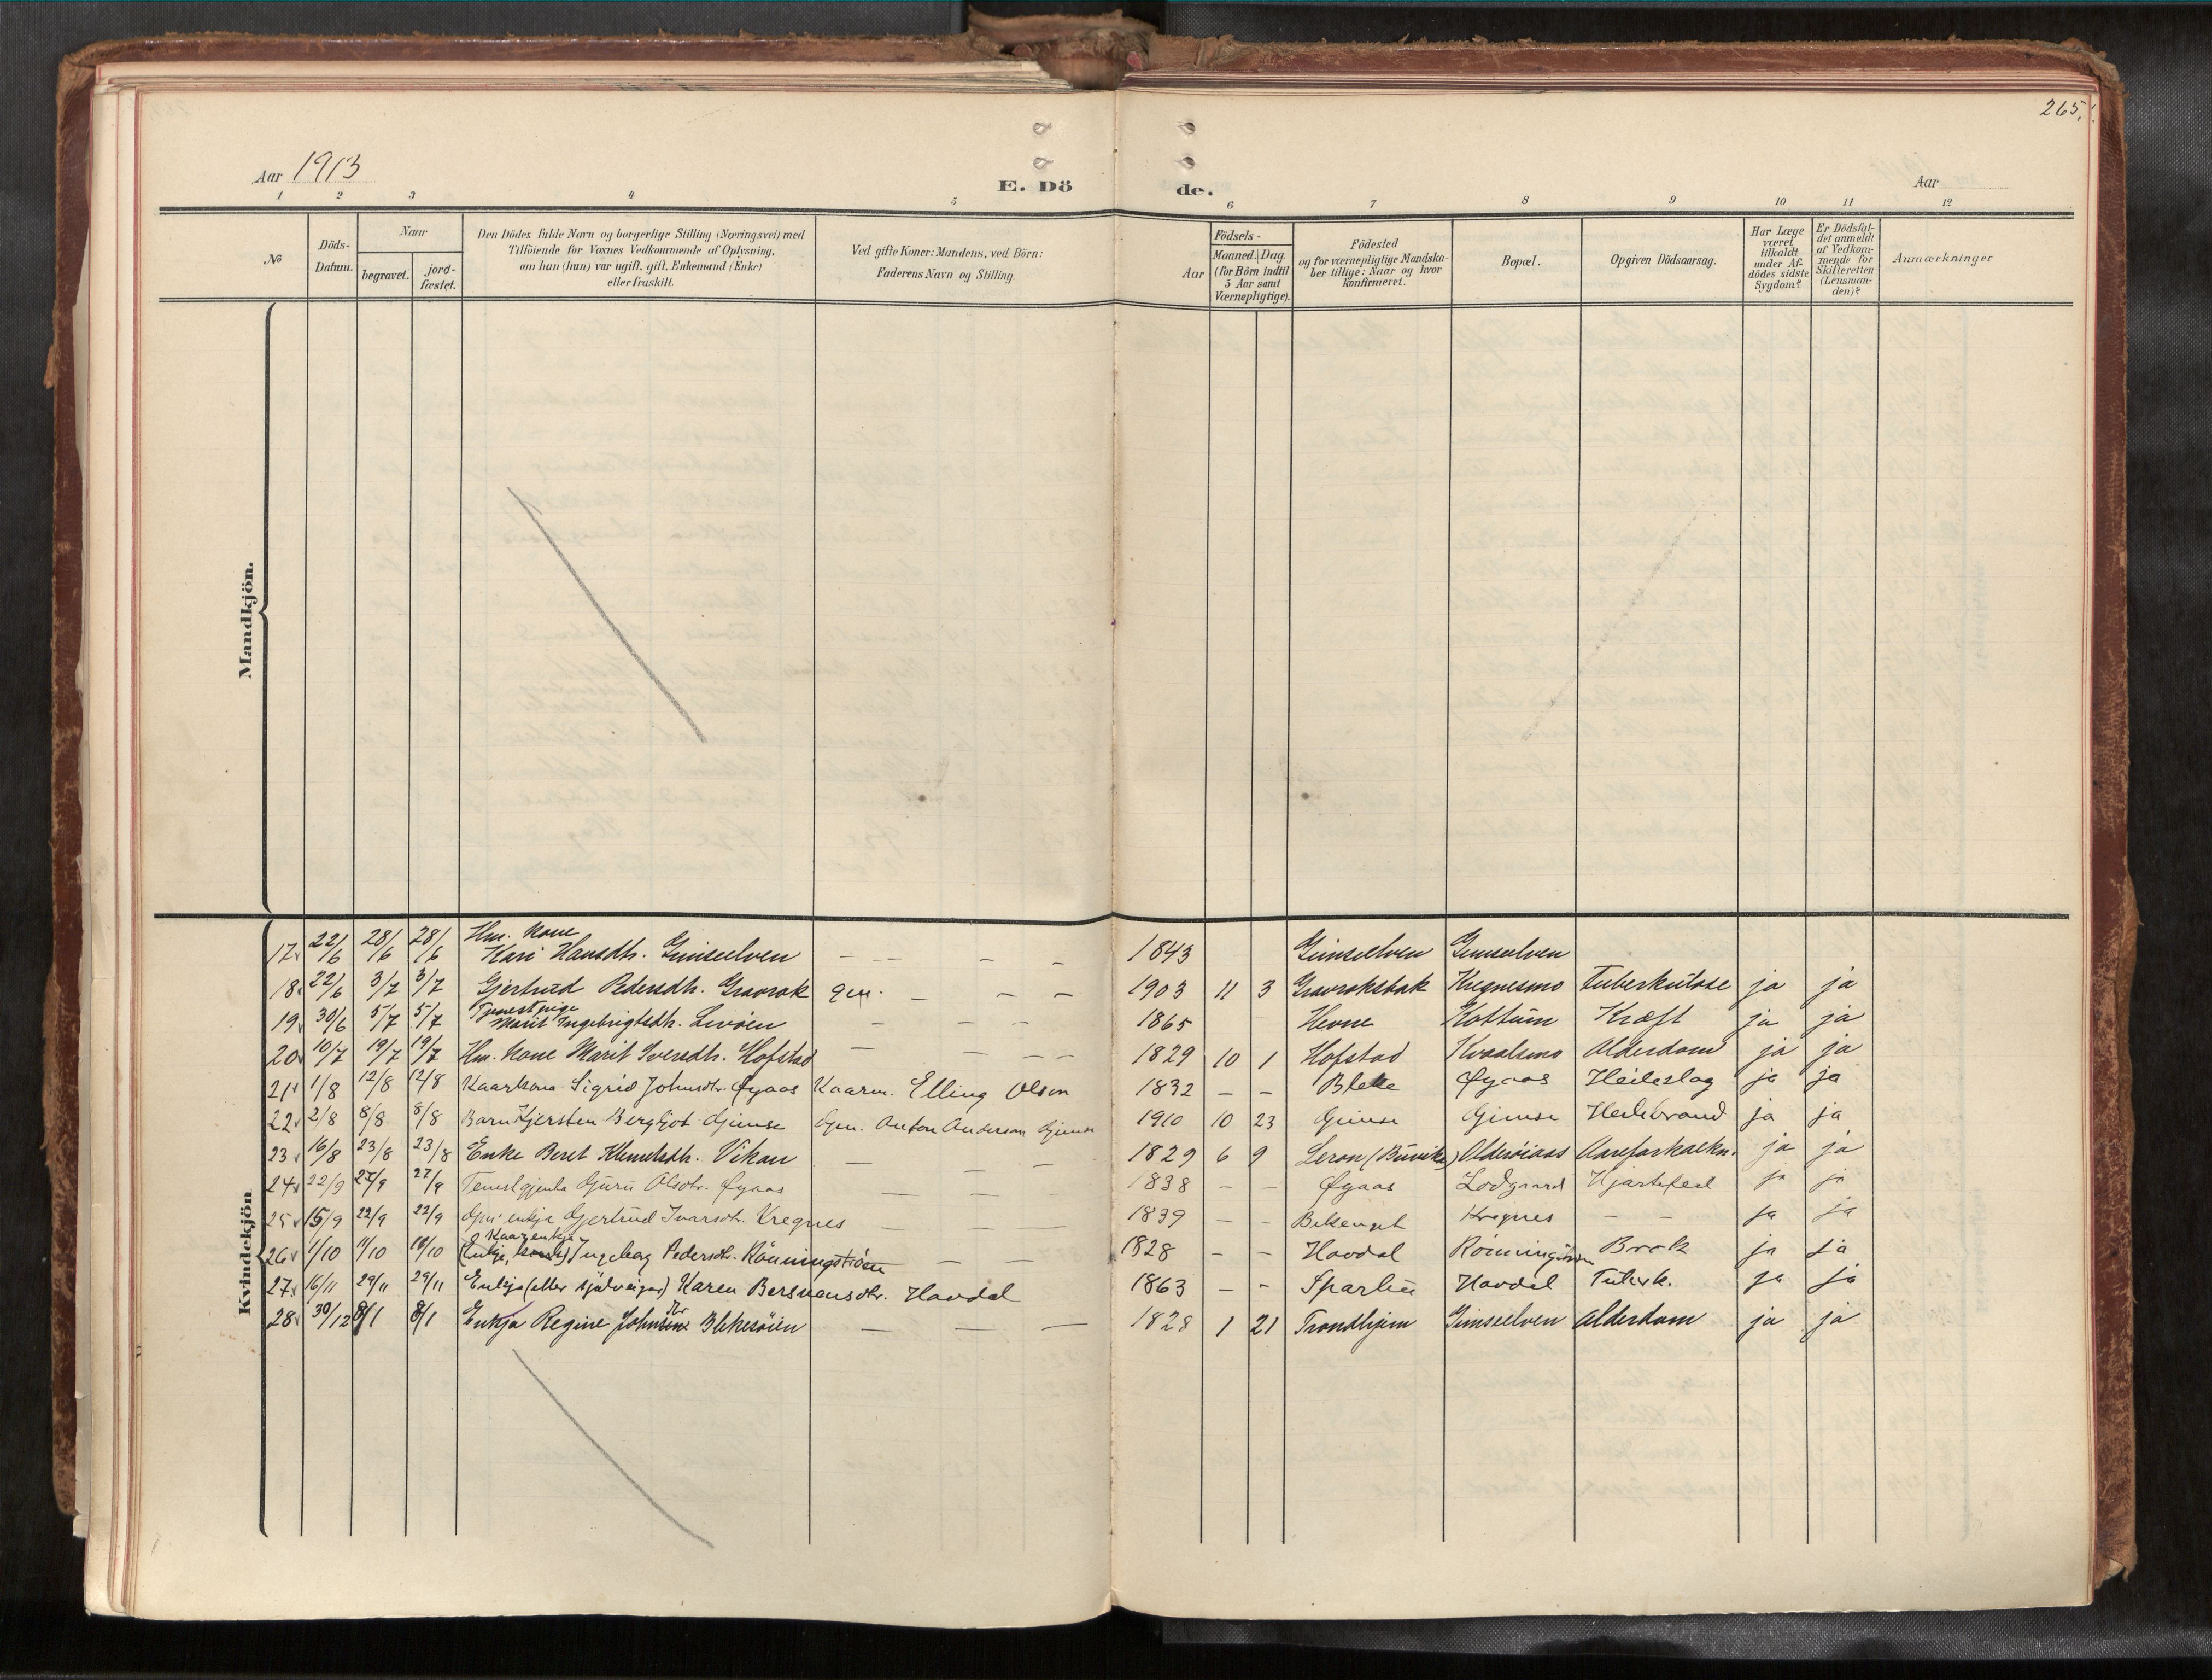 265.
Aar 1913
E. Dö
de.
Aar
1 2 3 4 5 6 7 8 9 10 11 12
№
Döds-
Datum.
Naar
begravet.
jord-
fæstet.
Den Dödes fulde Navn og borgerlige Stilling (Næringsvei) med
Tilföiende for Voxnes Vedkommende af Oplysning,
om han (hun) var ugift, gift, Enkemand (Enke)
eller fraskilt.
Ved gifte Koner: Mandens, ved Börn:
Faderens Navn og Stilling.
Aar
Födsels-
Maaned. Dag.
(for Börn indtil
5 Aar samt
Værnepligtige).
Födested
og for værnepligtige Mandska-
ber tillige: Naar og hvor
konfirmeret.
Bopæl.
Opgiven Dödsaarsag.
Har Læge
været
tilkaldt
under Af-
dödes sidste
Sygdom?
Er Dödsfal-
det anmeldt
af Vedkom-
mende for
Skifteretten
(Lensman-
den)?
Anmærkninger
Mandkjön.
Kvindekjön.
Hm. Kone
17 22/6 28/6 28/6 Kari Hansdtr. Gimselven — — — — 1843 Gimselven Gimselven
18 22/6 3/7 3/7 Gjertrud Pedersdtr. Gravrok — — — 1903 11 3 Gravrokbak Kregnesmo Tuberkulose ja ja
Tjenestpige
19 30/6 5/7 5/7 Marit Ingebrigtsdtr. Levöien — — — 1865 Hevne Kottum Kræft ja ja
20 10/7 19/7 19/7 Hm. Kone Marit Iversdtr. Hofstad — — — — 1829 10 1 Hofstad Kvaalsmo Alderdom ja ja
21 1/8 12/8 12/8 Kaarkona Sigrid Johnsdtr. Øyaas Kaarm. Elling Olsen 1832 — — Bleke Øyaas Heileslag ja ja
22 2/8 8/8 8/8 Barn Kjersten Bergljot Gimse Gm. Anton Andersen Gimse 1910 10 23 Gimse Gimse Heilebrand ja ja
23 16/8 23/8 23/8 Enke Beret Klemetsdtr. Vikan — — — 1829 6 9 Leron (Buvika) Alderöiaas Aareforkalkn. ja ja
24 22/9 27/9 27/9 Tenestgjenta Guru Olsdtr. Øyaas — — — 1838 — — Øyaas Lodgaard Hjartefeil ja ja
25 15/9 22/9 22/9 Gm. enkja Gjertrud Ivarsdtr. Kregnes — — — 1839 — — Kregnes — — ja ja
Kaarenkja
26 1/10 11/10 Ingeborg Pedersdtr. Rönningströen — — 1828 — — Havdal Brok ja ja
27 16/11 29/11 29/11 Enkja (eller sjølveigar) Karen Bersvansdtr. Havdal 1863 — — Havdal Tuberk. ja ja
28 30/12 8/1 8/1 Enkja Regine Johnsdtr Blekesöien — — — 1828 1 21 Trondhjem Gimselven Alderdom ja ja